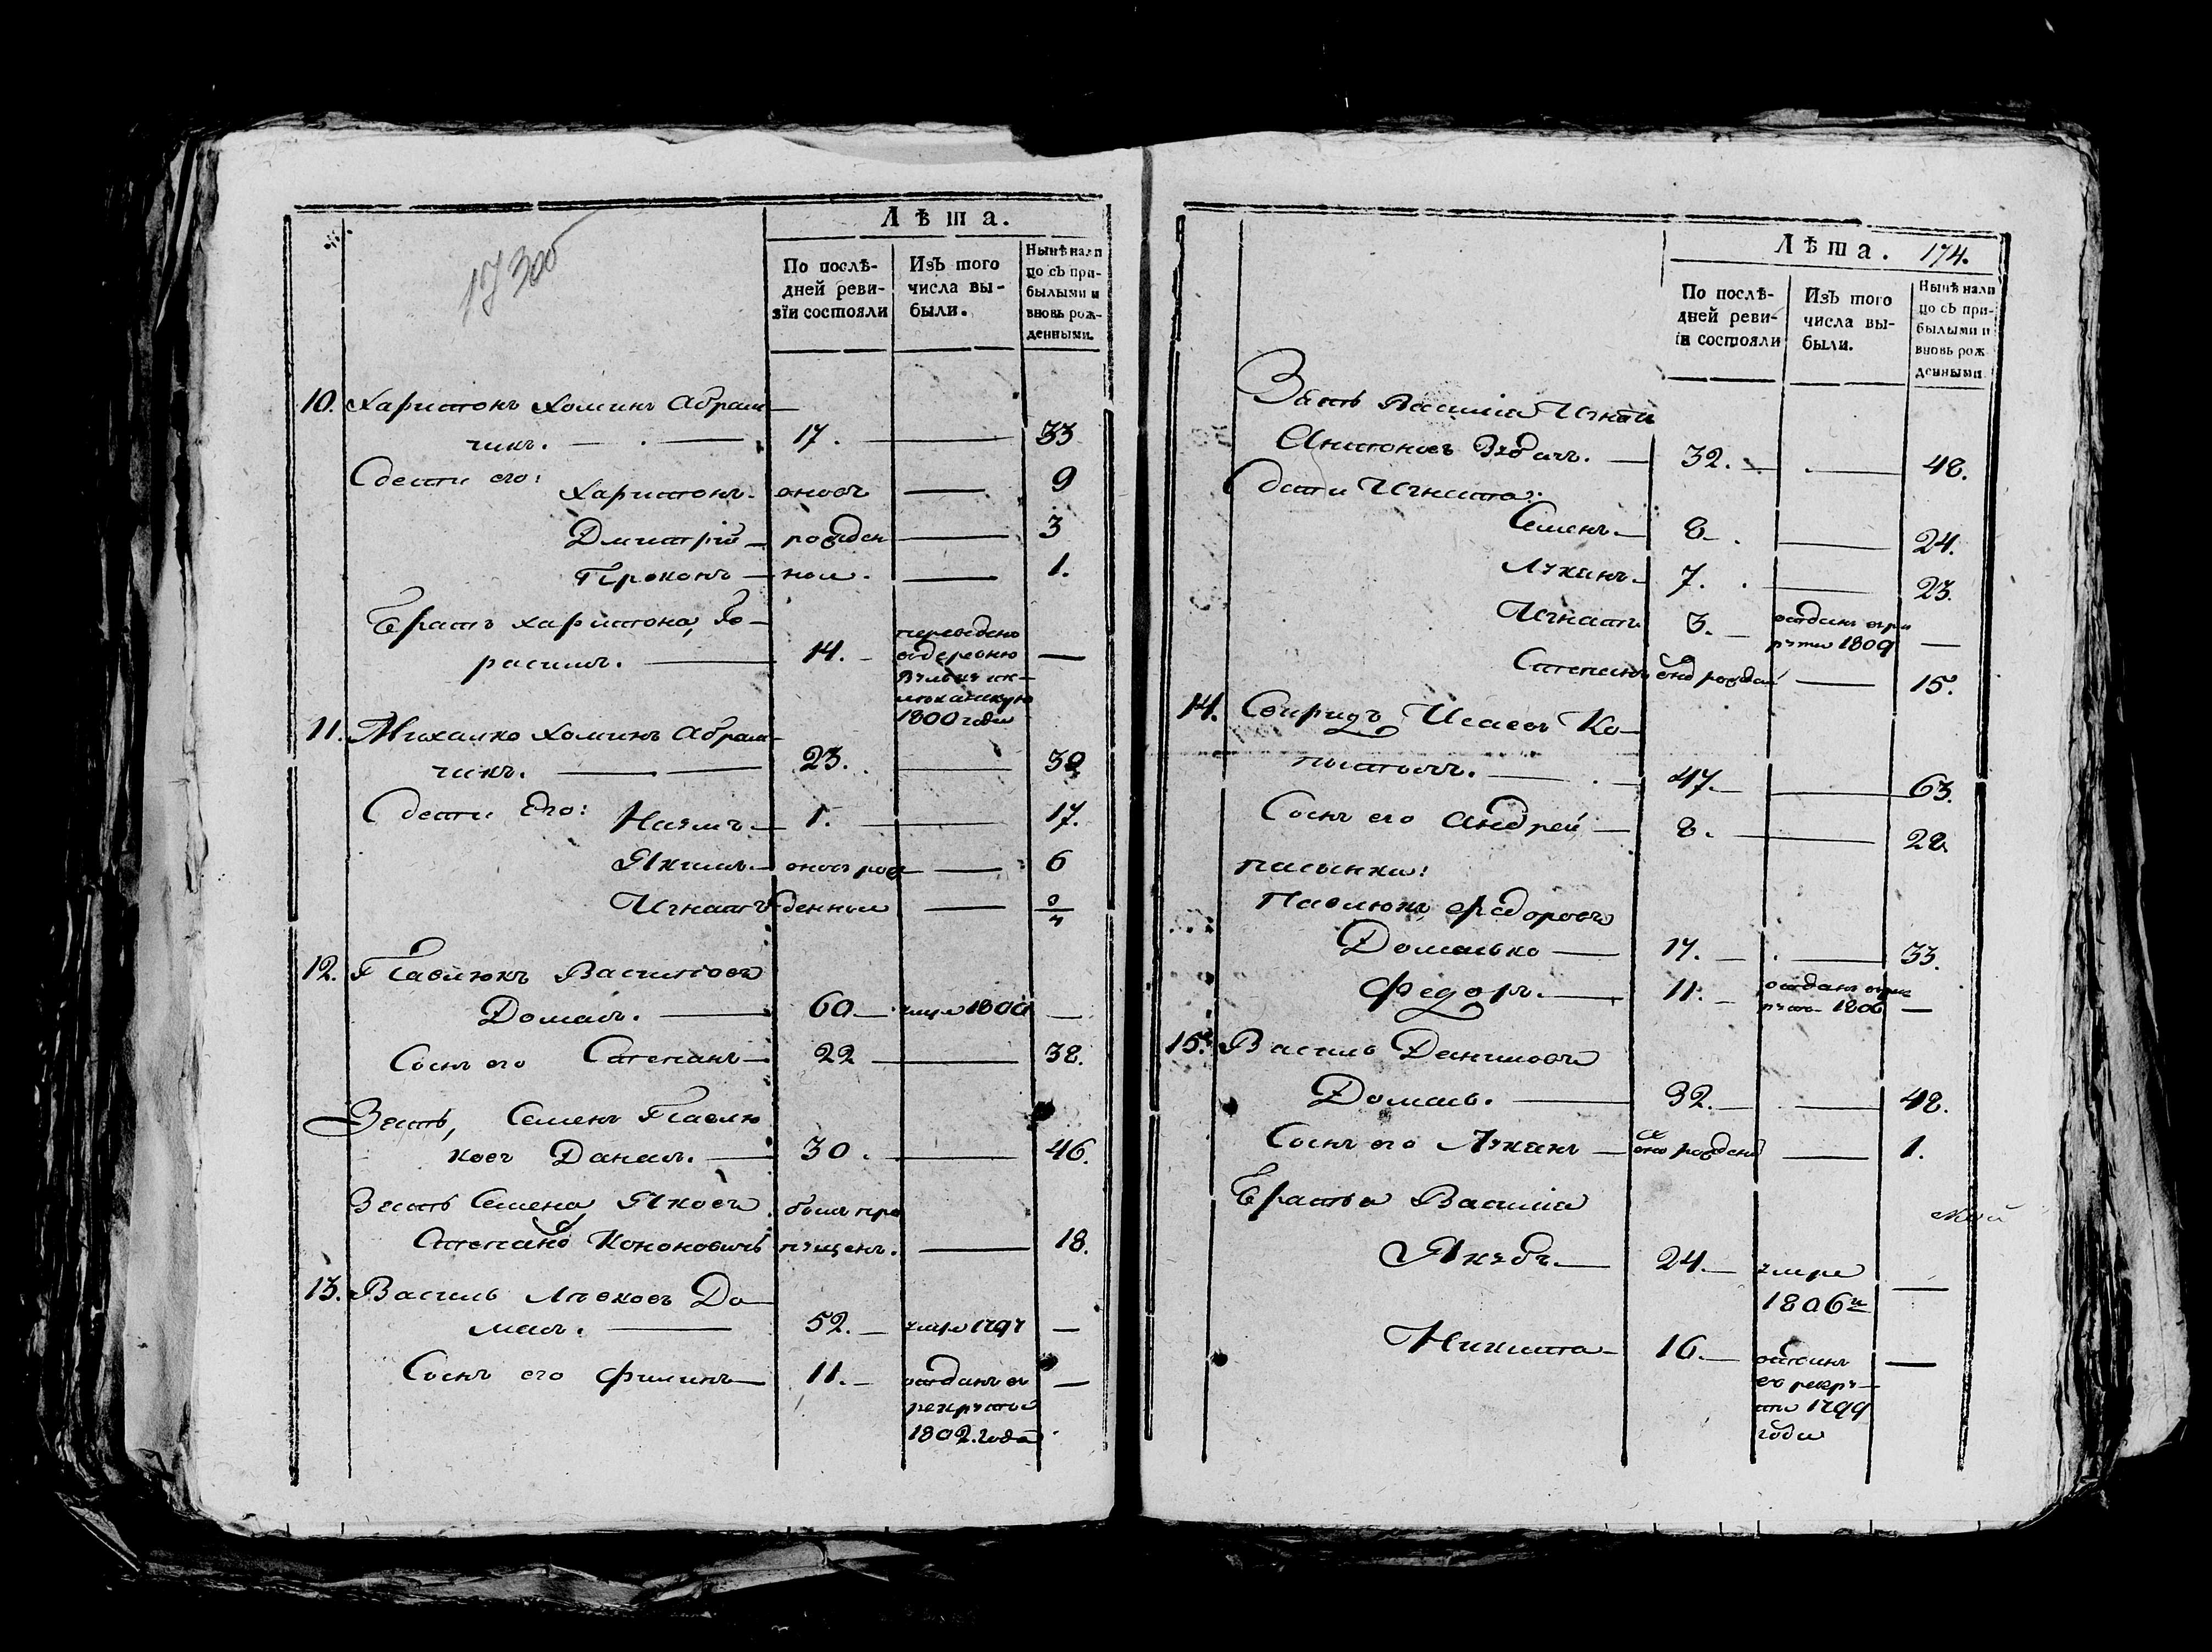 Лѣта.
По послѣ-
дней реви-
зїи состояли
Изъ того
числа вы-
были.
Нынѣ нали
цо съ при-
былыми и
вновь рож-
денными.
10. Харитонъ Хоминъ Абрам
чикъ. 17. — 33
дети его: Харитонъ. вновь — 9
Дмитрій рожден — 3
Прокопъ ные. — 1.
Братъ Харитона,
расимъ. 14. переведенъ —
в деревню
1800 года
11. Михалко Хоминъ Абрам
чикъ. 23. — 39
дети его: Наумъ 1. — 17.
Якимъ вновь рож — 6
Игнатъ денные —
12. Павлюкъ Василіовъ
Домаш. 60 умре —
Сынъ его Степанъ 22 — 38.
Зять, Семенъ Павлю
ковъ 30. — 46.
Зять Семена Яковъ былъ про
Степановъ Кононовичъ пущенъ. — 18.
13. Василь До
маш. 52. умре 1797 —
Сынъ его Филипъ 11. отданъ въ —
рекруты
1802. года
Лѣта. 174.
По послѣ-
дней реви-
їи состояли
Изъ того
числа вы-
были.
Нынѣ нали
цо съ при-
былыми и
вновь рож
денными
Зять Василія Игнатъ
Антоновъ 32. — 48.
дети Игната:
Семенъ 8. — 24.
Лукьянъ 7. — 23.
Игнатъ 3. отданъ в рек
руты 1809 —
Степанъ внов рожден — 15.
14. Свиридъ Исаевъ Ко
47. — 63.
Сынъ его Андрей 8. — 28
пасынки:
Павлюкъ Федоровъ
Домашко 17. — 33.
Федоръ. 11. отданъ в рек
руты 1806 —
15. Василь Даниловъ
Домаш. 32. — 48.
Сынъ его Лукьянъ внов рожден — 1.
Братья Василія
Якубъ 24. умре —
1806
Никита 16. отданъ —
въ рекру
ты 1799
года